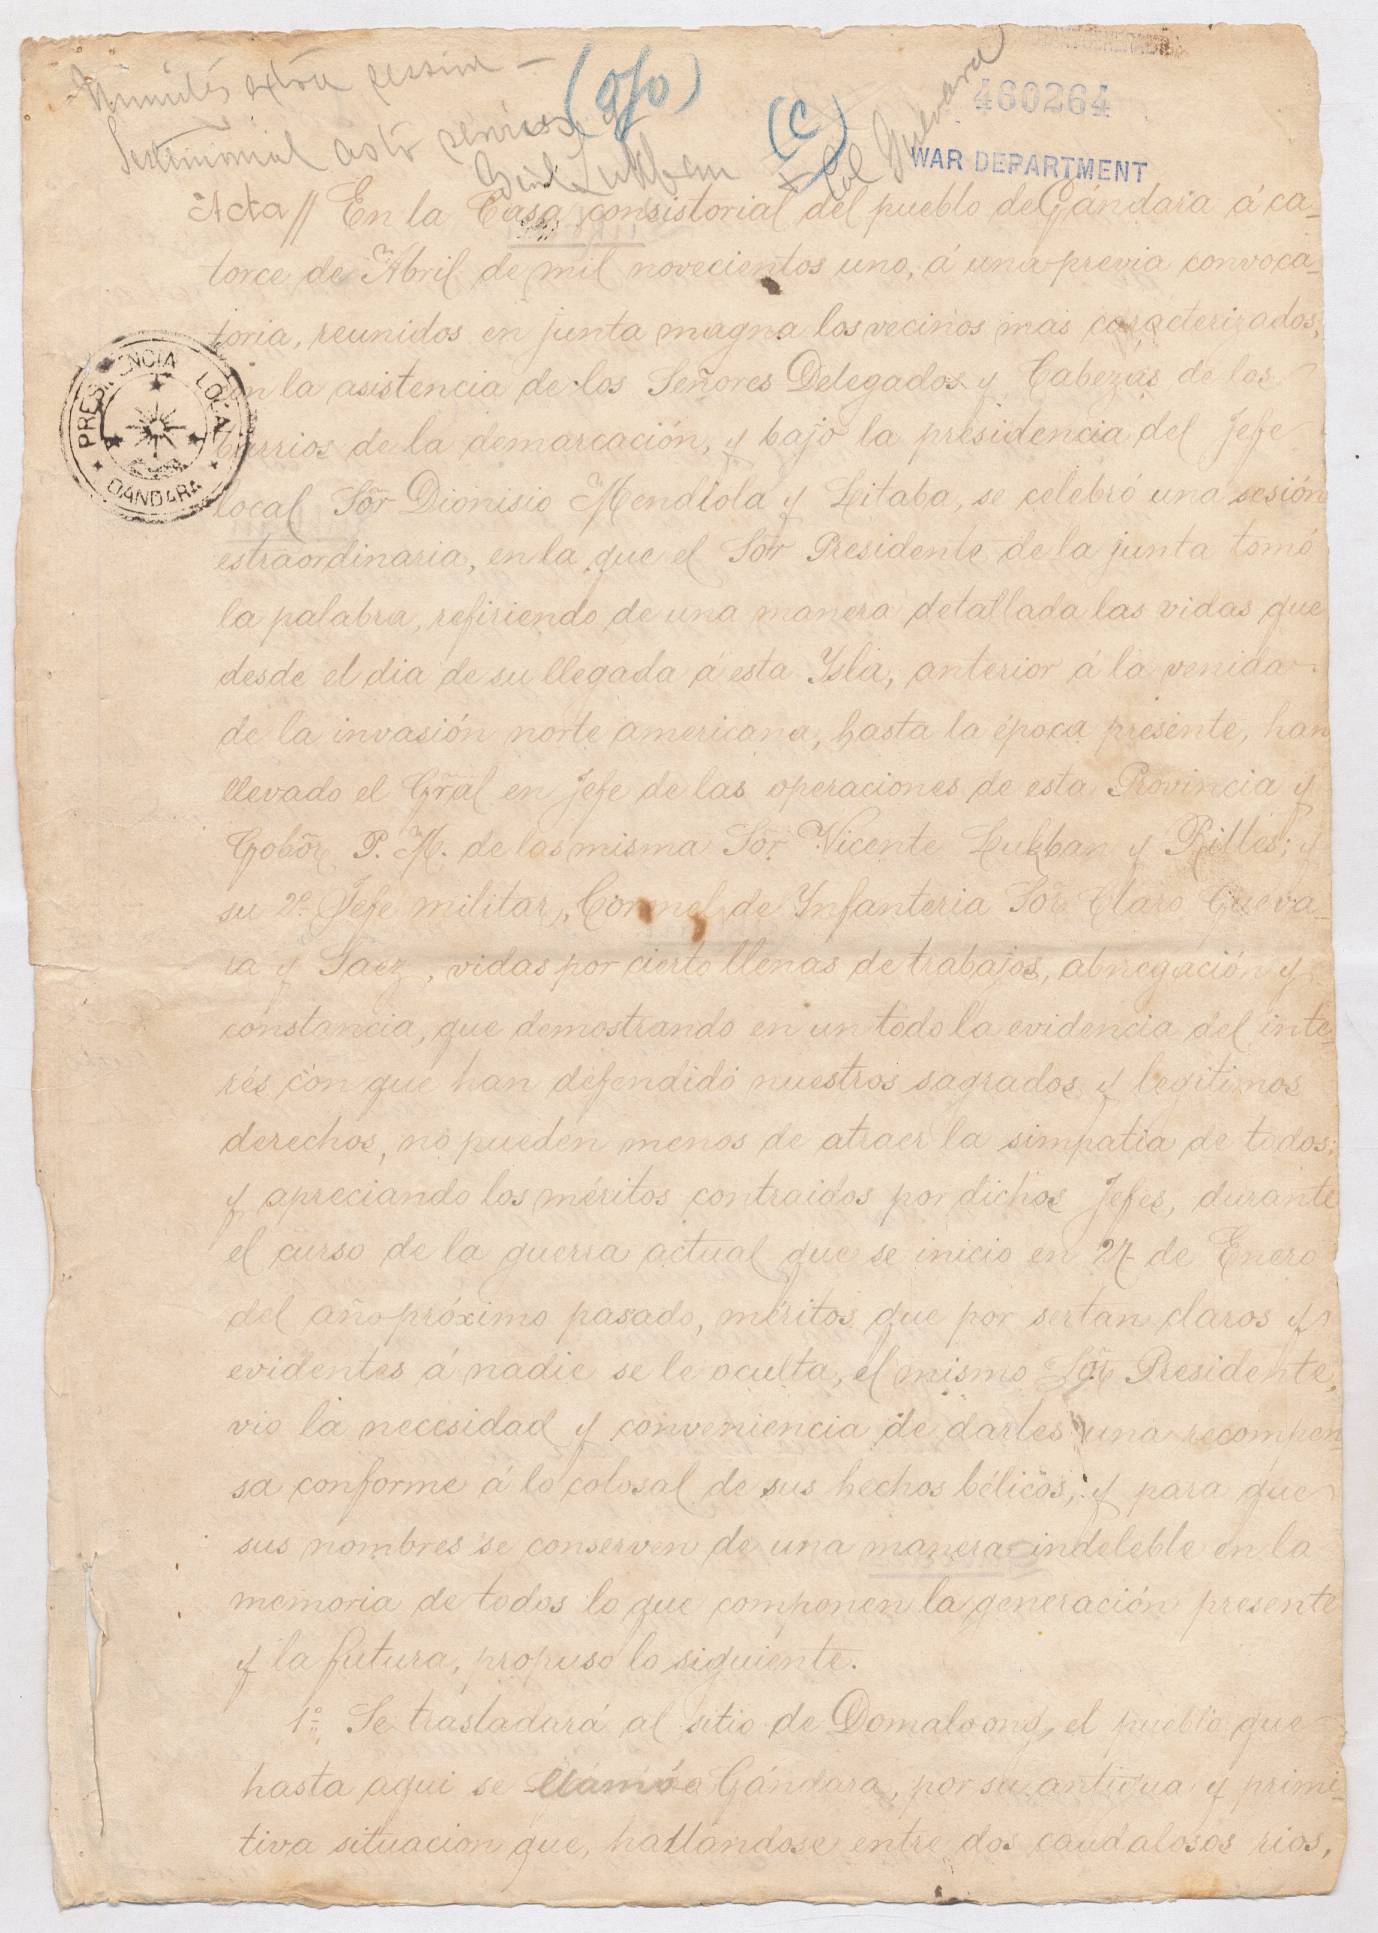 Minutes extra session —
(9/0)
(C)
460264
WAR DEPARTMENT
Testimonial as to services of
Genl Lukban + Col Guevara
Acta // En la Casa consistorial del pueblo de Gándara á ca-
torce de Abril de mil novecientos uno, á una previa convoca-
toria, reunidos en junta magna los vecinos mas caracterizados,
con la asistencia de los Señores Delegados y Cabezas de los
barrios de la demarcación, y bajo la presidencia del Jefe
local Sõr Dionisio Mendiola y Litaba, se celebró una sesión
estraordinaria, en la que el Sõr Presidente de la junta tomó
la palabra, refiriendo de una manera detallada las vidas que
desde el dia de su llegada á esta Ysla, anterior á la venida
de la invasión norte americana, hasta la época presente, han
llevado el Gr̃al en Jefe de las operaciones de esta Provincia y
Gobõr P. M. de la misma Sõr Vicente Lukban y Rilles; y
su 2º Jefe militar, Coronel de Ynfanteria Sõr Claro Gueva-
ra y Saez, vidas por cierto llenas de trabajos, abnegación y
constancia, que demostrando en un todo la evidencia del inte-
rés con que han defendido nuestros sagrados y legitimos
derechos, no pueden menos de atraer la simpatia de todos;
y apreciando los méritos contraidos por dichos Jefes, durante
el curso de la guerra actual que se inicio en 27 de Enero
del año próximo pasado, méritos que por ser tan claros y
evidentes á nadie se le oculta, el mismo Sõr Presidente,
vio la necesidad y conveniencia de darles una recompen-
sa conforme á lo colosal de sus hechos bélicos, y para que
sus nombres se conserven de una manera indeleble en la
memoria de todos lo que componen la generación presente
y la futura, propuso lo siguiente.
1º Se trasladará al sitio de Domaloong, el pueblo que
hasta aqui se llamóa Gándara, por su antigua y primi-
tiva situacion que, hallándose entre dos caudalosos rios,
PRESIDENCIA LOCAL
GANDARA